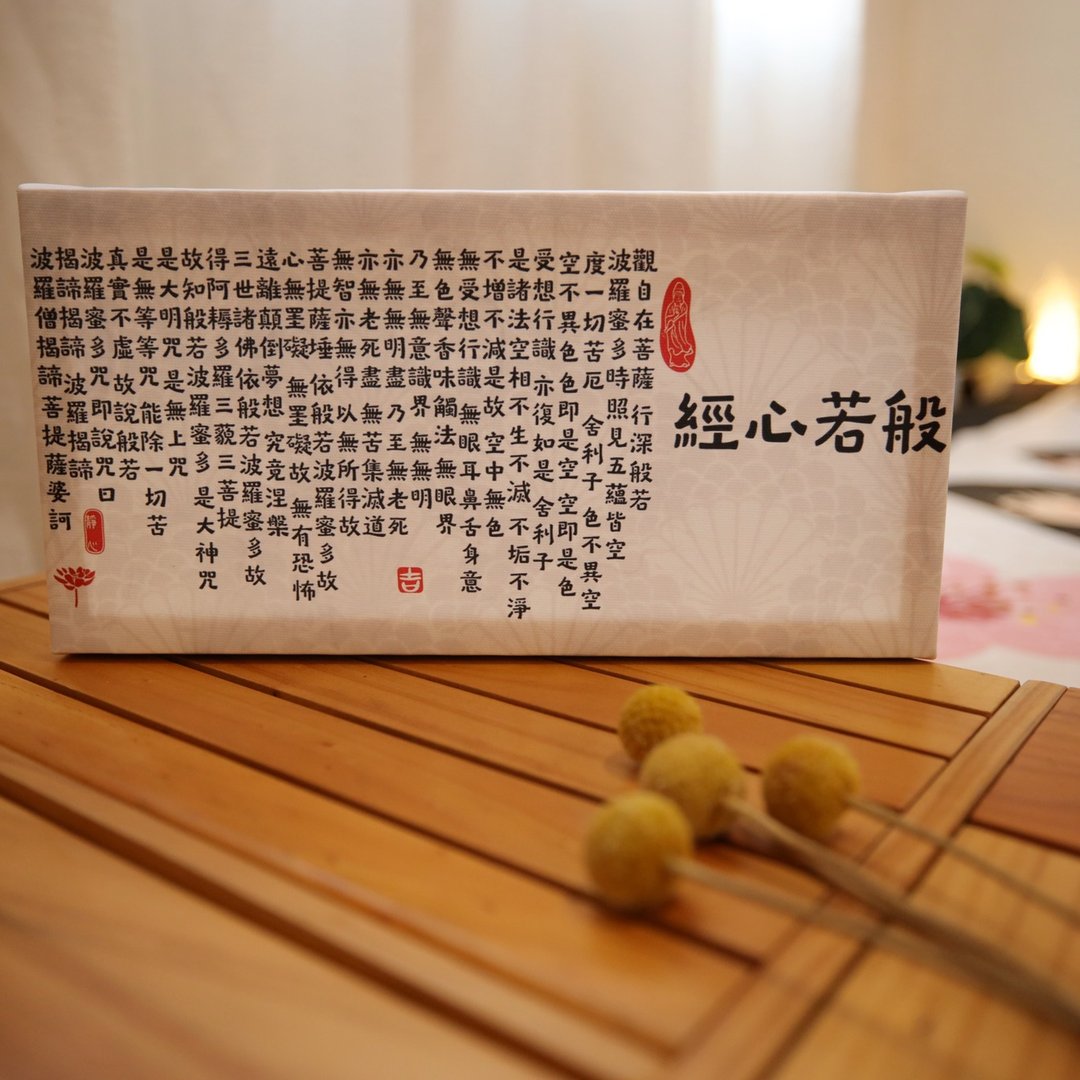 般若心經
觀自在菩薩 行深般若
波羅蜜多時照見五蘊皆空
度一切苦厄 舍利子 色不異空
空不異色色即是空 空即是色
受想行識 亦復如是 舍利子
是諸法空相不生不滅 不垢不淨
不增不減是故 空中無色
無受想行識 無眼耳鼻舌身意
無色聲香味觸法 無眼界
乃至無意識界 無無明
亦無無明盡 乃至無老死
亦無老死盡 無苦集滅道
無智亦無得 以無所得故
菩提薩埵 依般若波羅蜜多故
心無罣礙 無罣礙故 無有恐怖
遠離顛倒夢想 究竟涅槃
三世諸佛 依般若波羅蜜多故
得阿耨多羅三藐三菩提
故知般若波羅蜜多 是大神咒
是大明咒 是無上咒
是無等等咒 能除一切苦
真實不虛 故說般若
波羅蜜多咒 即說咒曰
揭諦揭諦 波羅揭諦
波羅僧揭諦菩提薩婆訶
吉
靜心